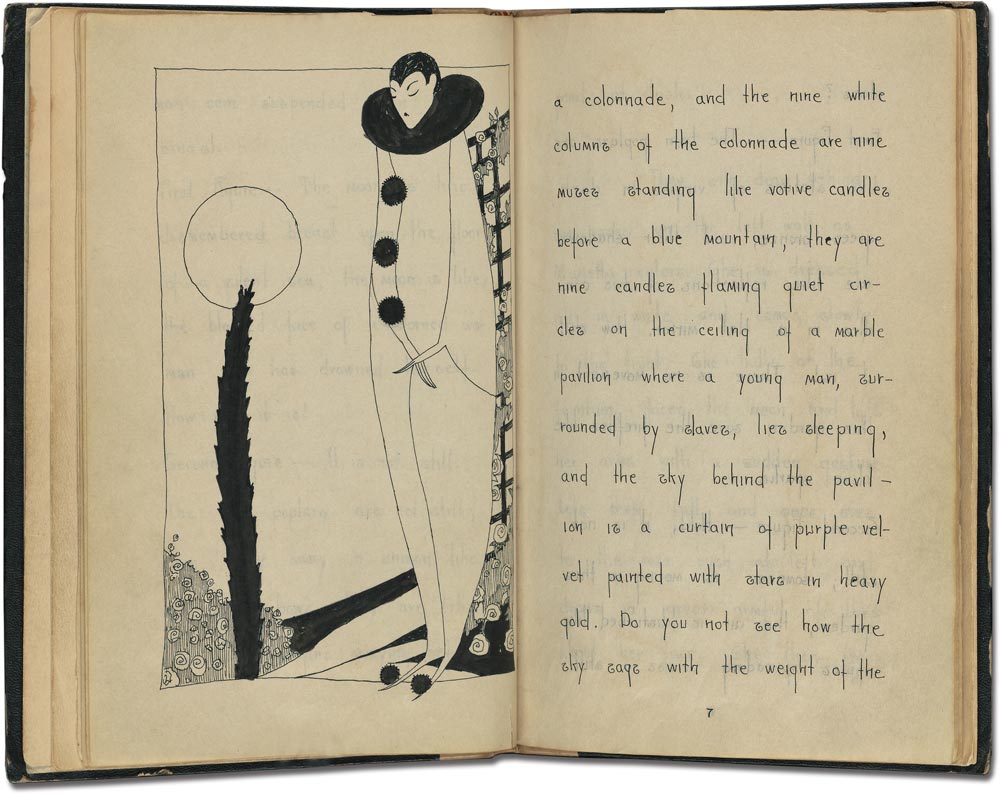 a colonnade, and the nine white
columns of the colonnade are nine
muses standing like votive candles
before a blue mountain; they are
nine candles flaming quiet cir-
cles on the ceiling of a marble
pavilion where a young man, sur-
rounded by slaves, lies sleeping,
and the sky behind the pavil-
ion is a curtain of purple vel-
vet painted with stars in heavy
gold. Do you not see how the
sky sags with the weight of the
7